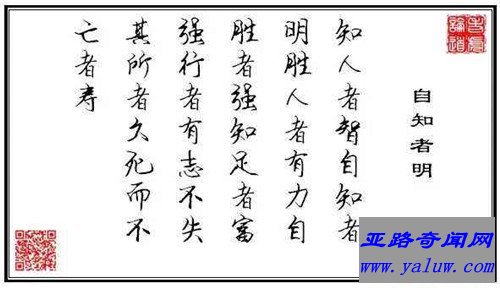 自知者明
知人者智自知者
明胜人者有力自
胜者强知足者富
强行者有志不失
其所者久死而不
亡者寿
亚路奇闻网
www.yaluw.com